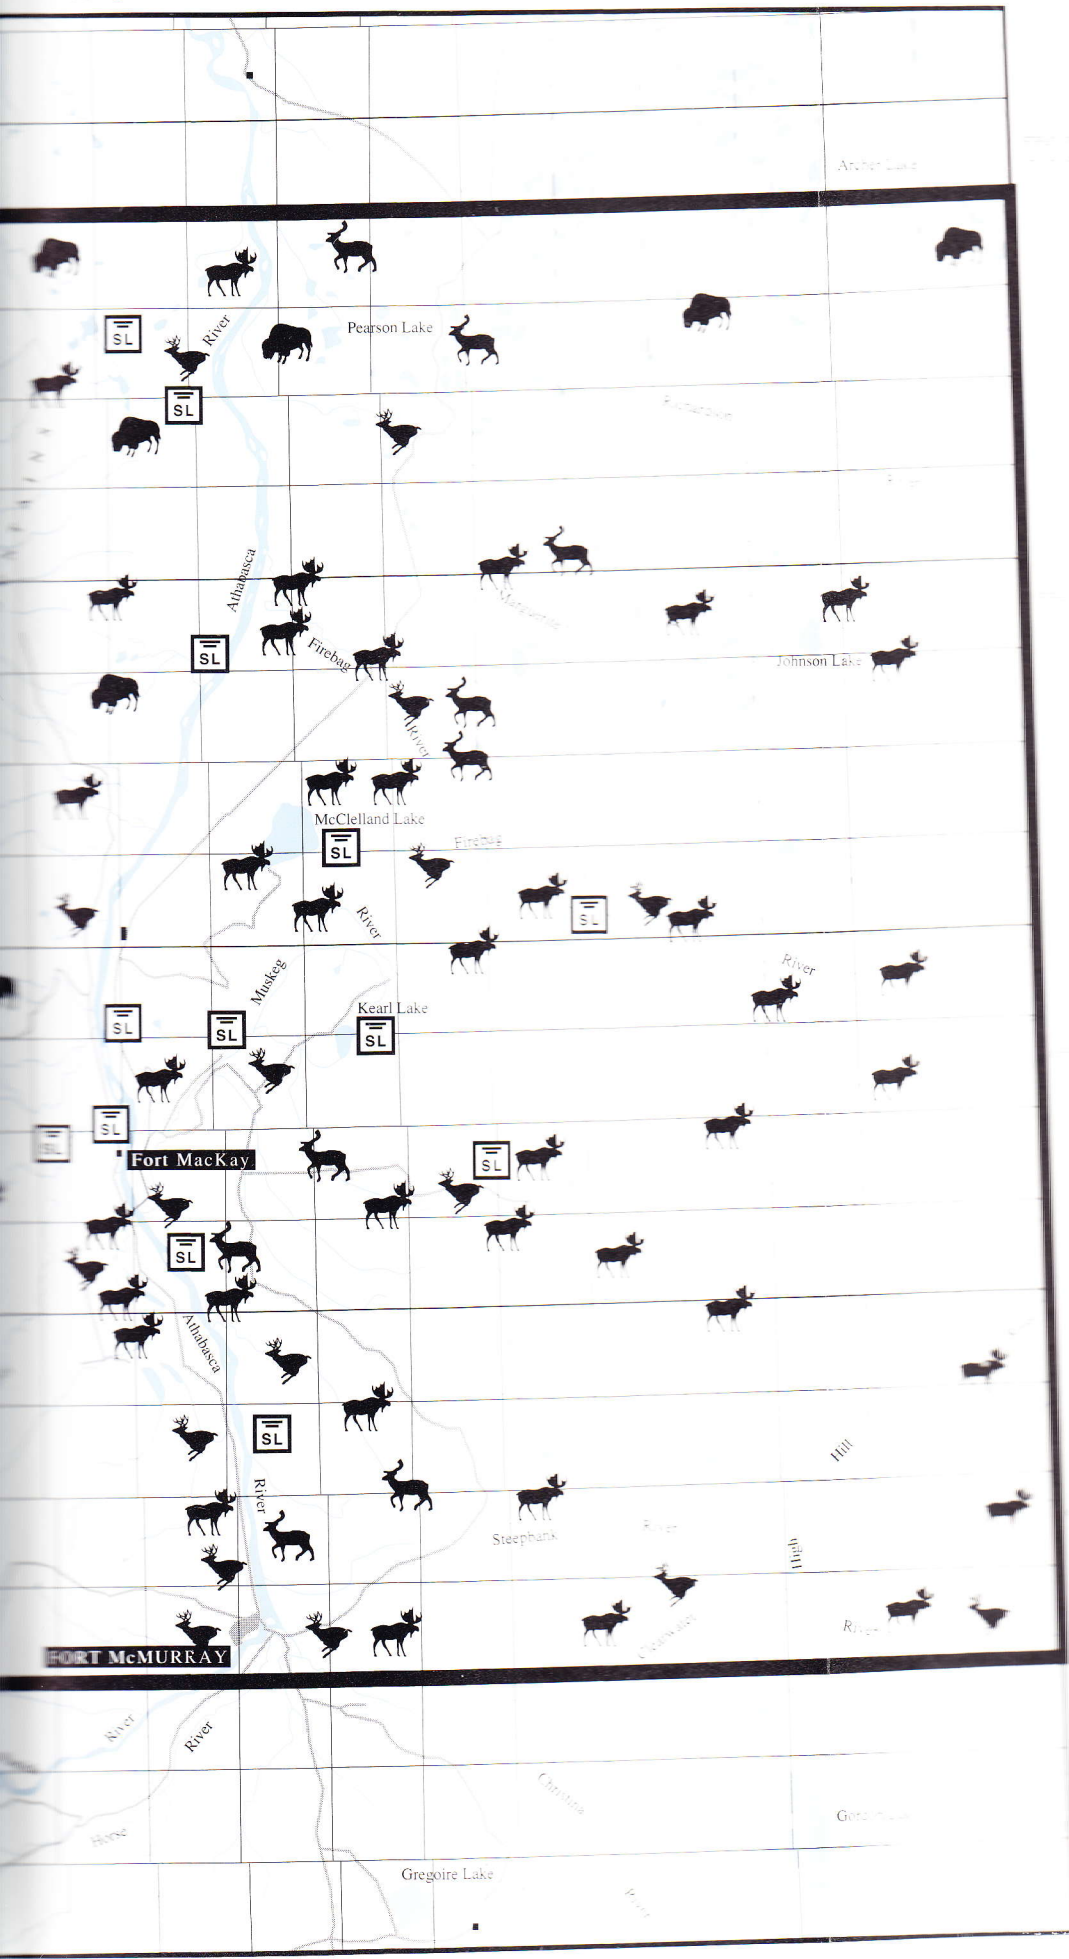 Archer Lake
SL
River
Pearson Lake
SL
Richardson
Athabasca
Firebag
SL
Johnson Lake
River
McClelland Lake
SL
Firebag
SL
River
River
Muskeg
Kearl Lake
SL
SL
SL
SL
SL
Fort MacKay
SL
SL
Athabasca
SL
Hill
River
Steepbank
River
High
Clearwater
River
FORT McMURRAY
River
River
Christina
Horse
Gregoire Lake
River